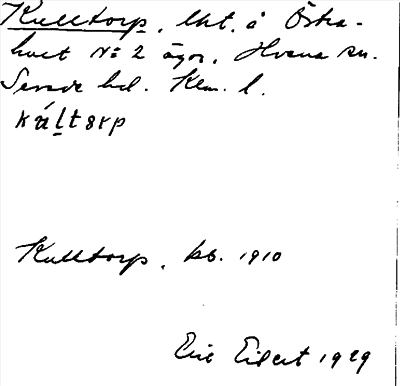 Kulltorp, lht. å Östra-
hult No 2 ägor, Hvena sn.
Sevede hd. Klm. l.
kúltɤrp
Kulltorp, kb. 1910
Eric Eilert 1929